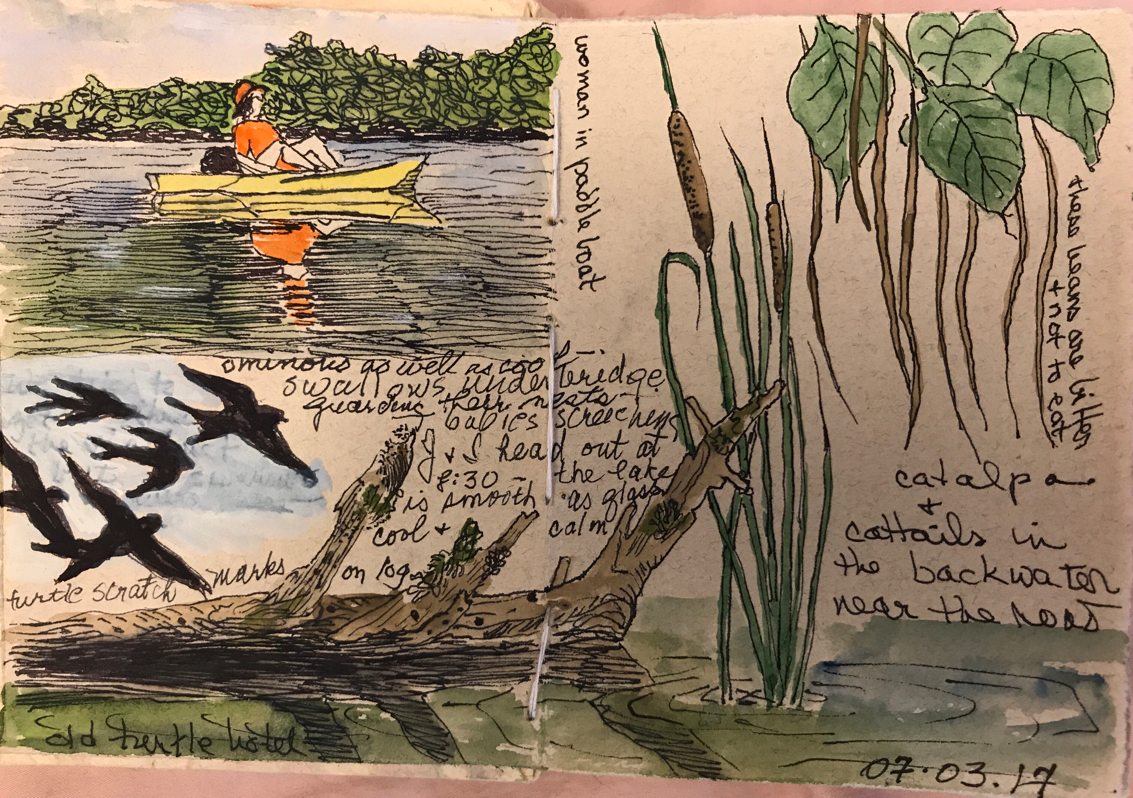 woman in paddle boat
ominous as well as cool
swallows under bridge
guarding their nests -
babies screeching
J & I head out at
8:30 - the lake
is smooth as glass
cool & calm
turtle scratch marks on log
old turtle hotel
these beans are bitter
& not to eat
catalpa
&
cattails in
the backwater
near the
07.03.17